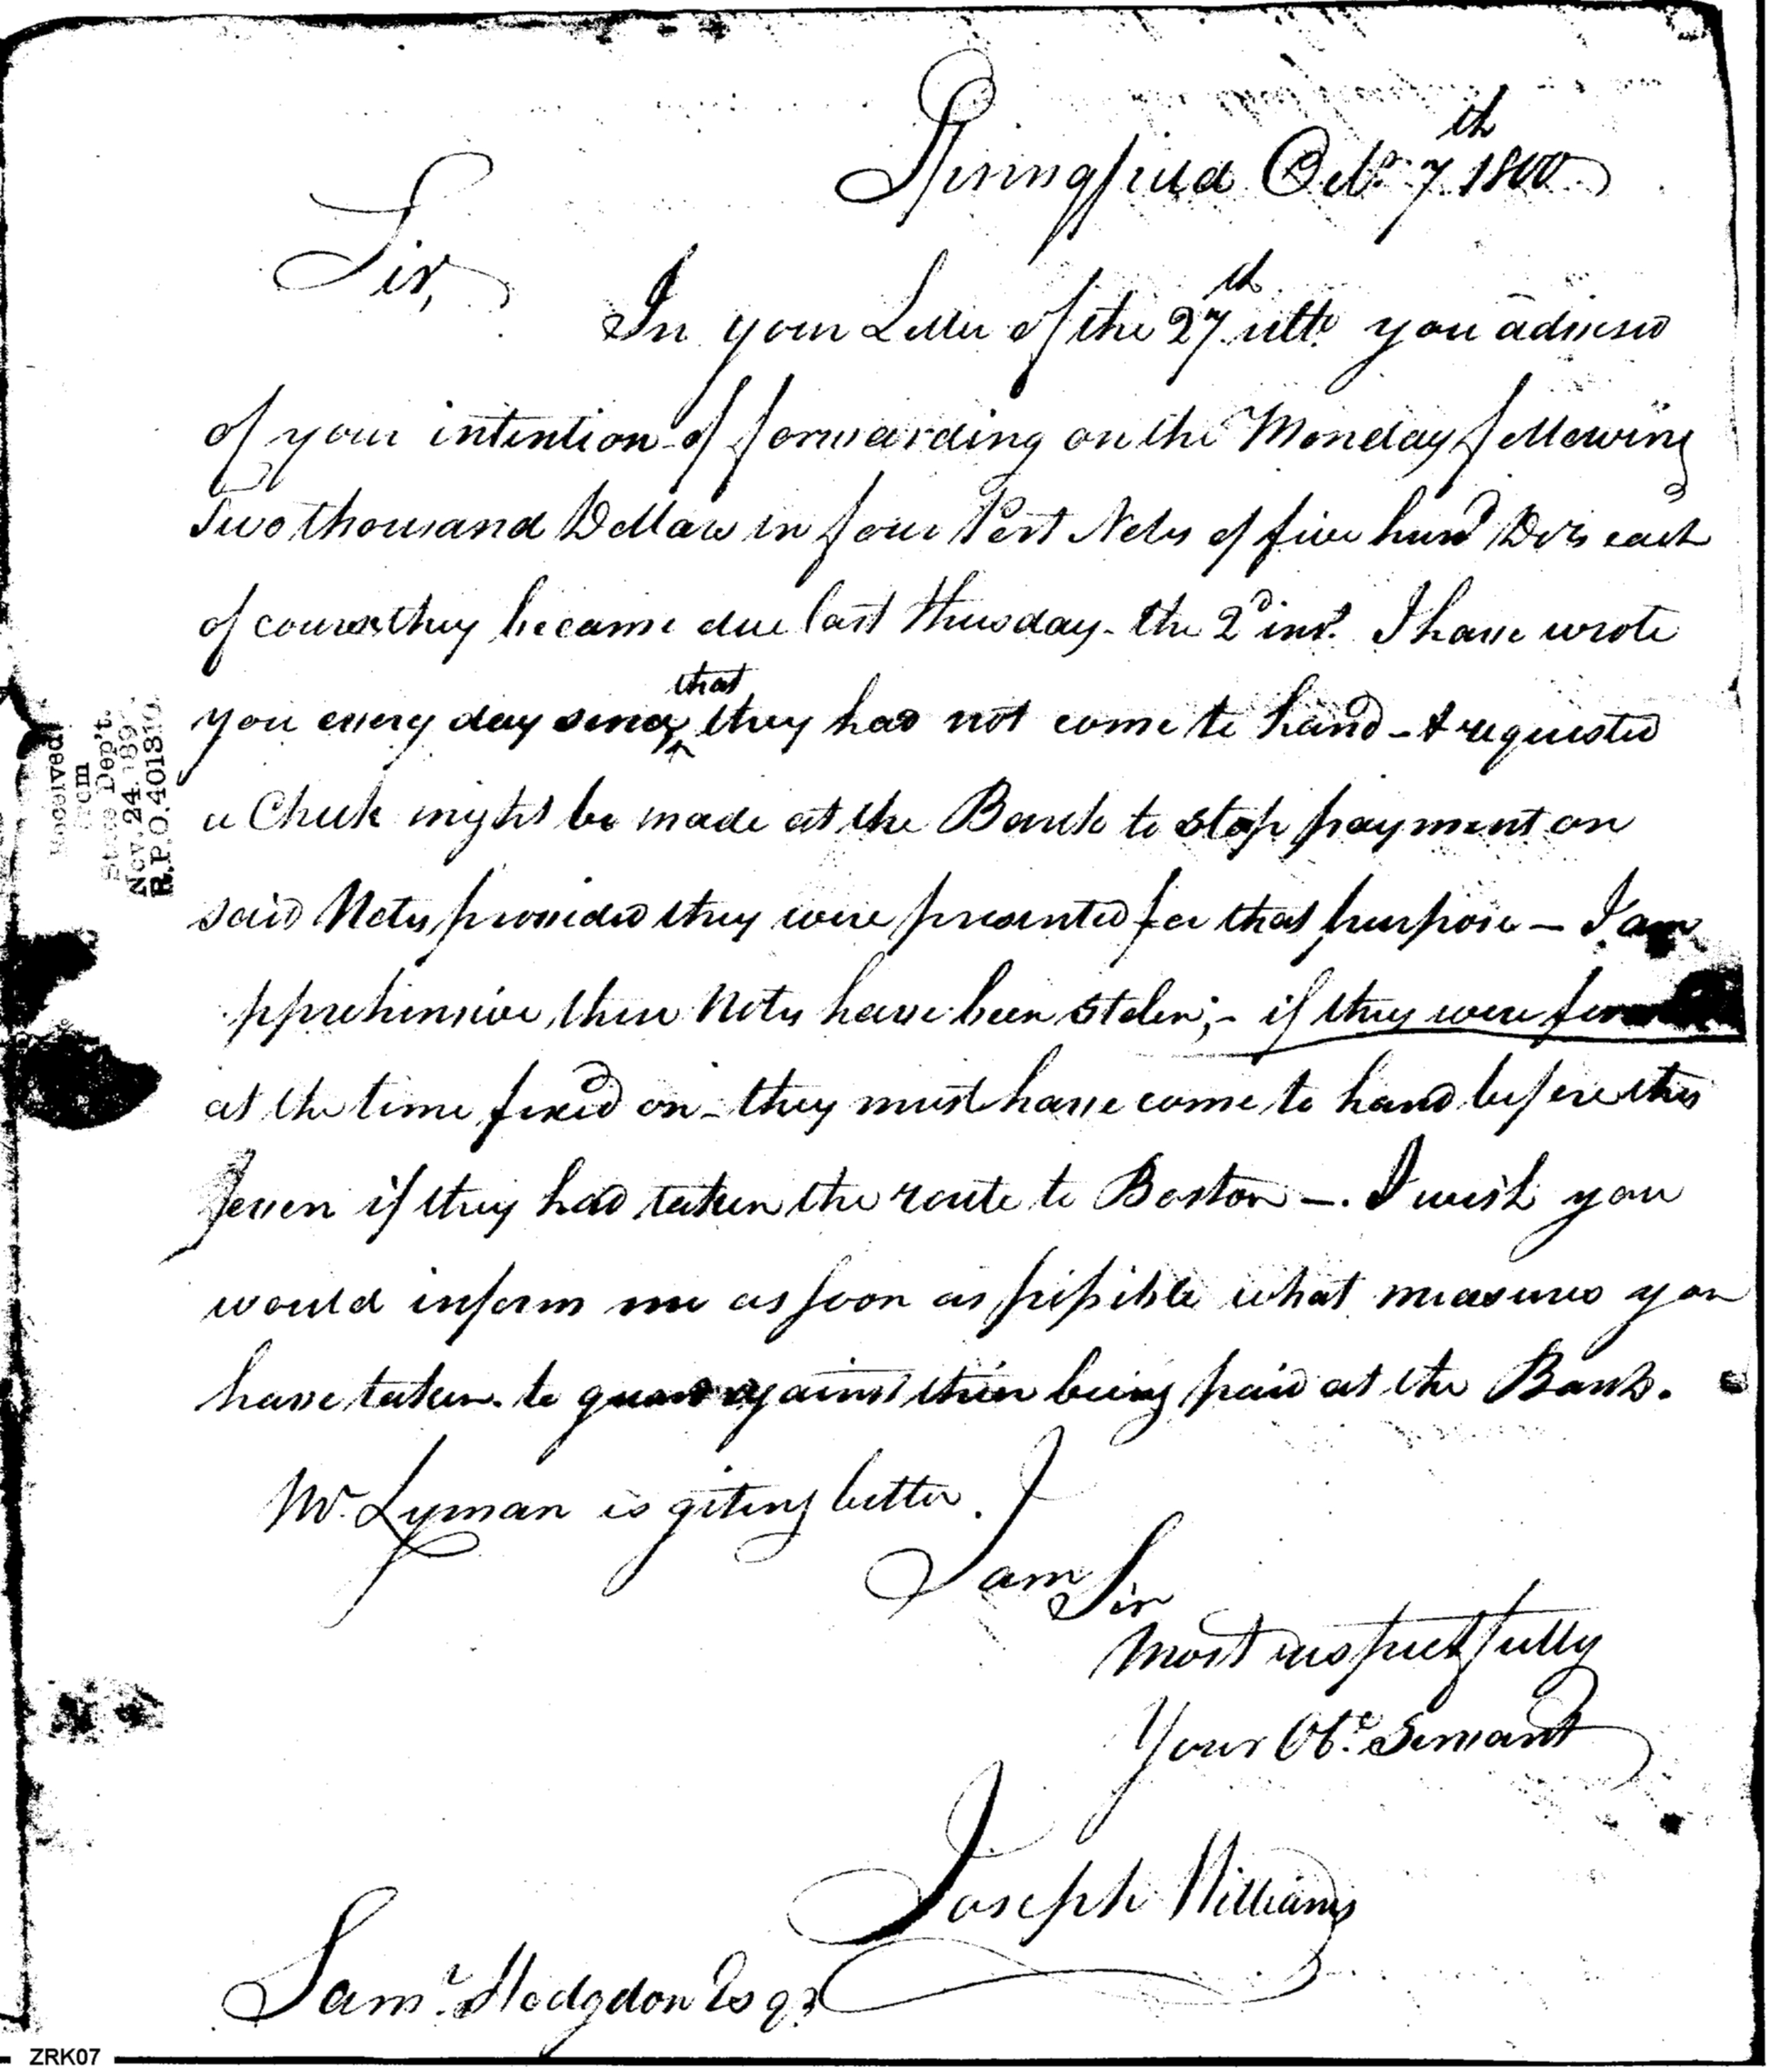 Springfield Octo. 7th 1800
Sir,
In your Letter of the 27th ulto. you advised
of your intention of forwarding on the Monday following
Two thousand Dollars in four Post Notes of five hund Dolrs each
of course they became due last thursday - the 2d inst. I have wrote
you every day since that they had not come to hand - & requested
a Check might be made at the Bank to stop payment on
said Notes, provided they were presented for that purpose - I am
pprehensive, these Notes have been stolen; - if they were
at the time fixed on - they must have come to hand before this
even if they had taken the route to Boston -. I wish you
would inform me as soon as possible what measures you
have taken to guard against their being paid at the Bank.
Mr. Lyman is giting better.
I am Sir
Most respectfully
Your Obt. Servant
Joseph Williams
Saml. Hodgdon Esqr.
Received
from
State Dep't.
Nov. 24. 189
R.P.O. 401310.
ZRK07